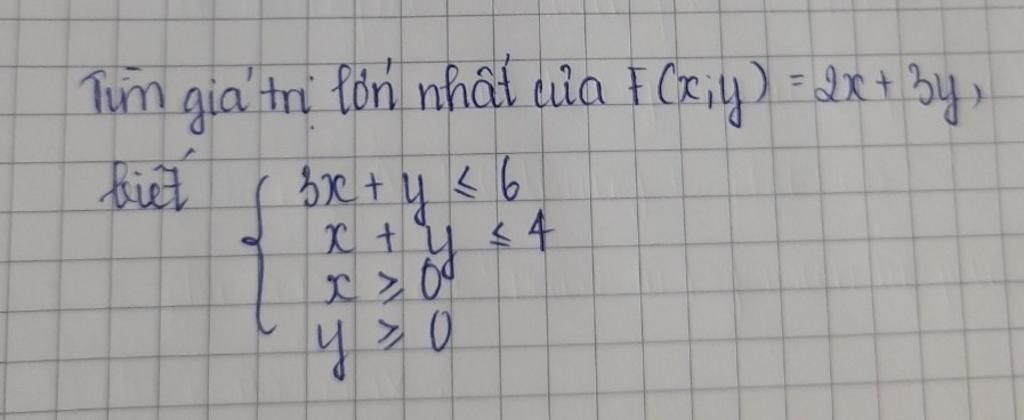 Tìm giá trị lớn nhất của F(x;y) = 2x + 3y,
biết { 3x + y ≤ 6
x + y ≤ 4
x ≥ 0
y ≥ 0